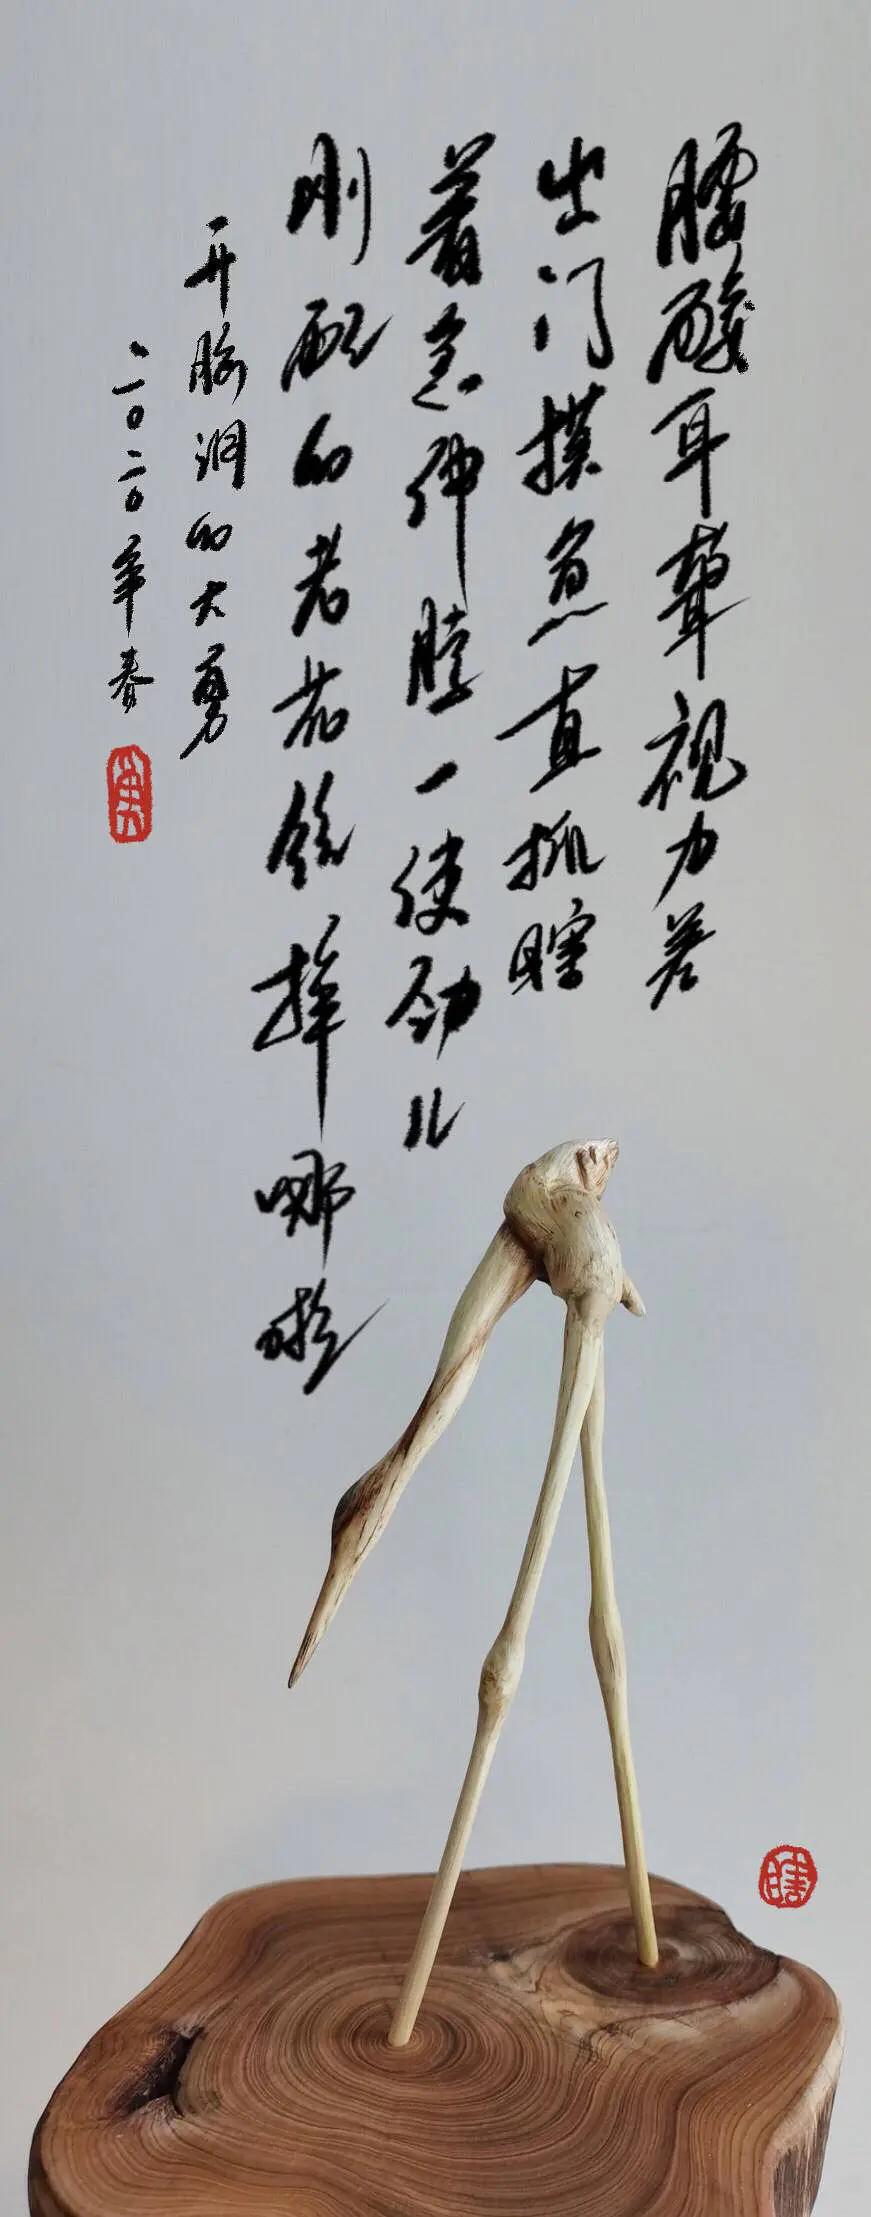 腰酸耳聋视力差
出门摸鱼直抓瞎
着急伸脖一使劲儿
刚配的老花镜摔哪啦
开脑洞的大勇
二〇二〇年春